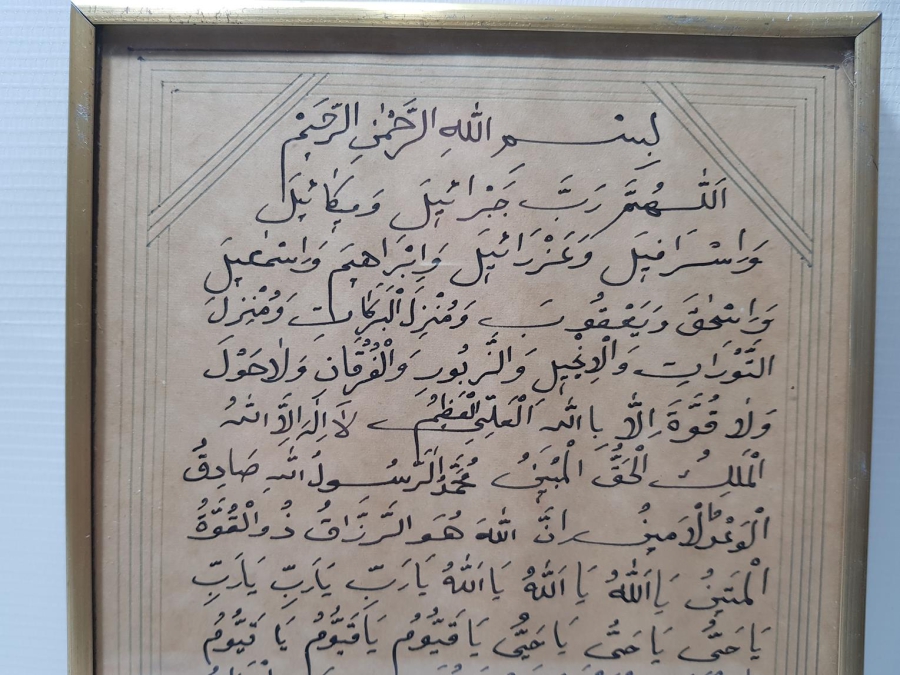 بِسْمِ اللهِ الرَّحْمٰنِ الرَّحِيْمْ
اَللّٰهُمَّ رَبَّ جَبْرَائِيلَ وَمِيكَائِيلَ
وَاِسْرَافِيلَ وَعَزْرَائِيلَ وَاِبْرَاهِيمَ وَاِسْمٰعِيلَ
وَاِسْحٰقَ وَيَعْقُوبَ وَمُنْزِلَ الْبَرَكَاتِ وَمُنْزِلَ
التَّوْرَاتِ وَالْاِنْجِيلِ وَالزَّبُورِ وَالْفُرْقَانِ وَلاَحَوْلَ
وَلاَ قُوَّةَ اِلَّا بِاللّٰهِ الْعَلِيِّ الْعَظِيمُ لَا اِلٰهَ اِلَّا اللّٰهُ
الْمَلِكُ الْحَقُّ الْمُبِينُ مُحَمَّدٌ الرَّسُولُ اللّٰهِ صَادِقُ
الْوَعْدُ الْاَمِينُ اِنَّ اللّٰهَ هُوَ الرَّزَّاقُ ذُو الْقُوَّةُ
الْمَتِينُ يَا اَللّٰهُ يَا اَللّٰهُ يَا اَللّٰهُ يَارَبِّ يَارَبِّ يَارَبِّ
يَا حَيُّ يَا حَيُّ يَا حَيُّ يَا قَيُّومُ يَا قَيُّومُ يَا قَيُّومُ